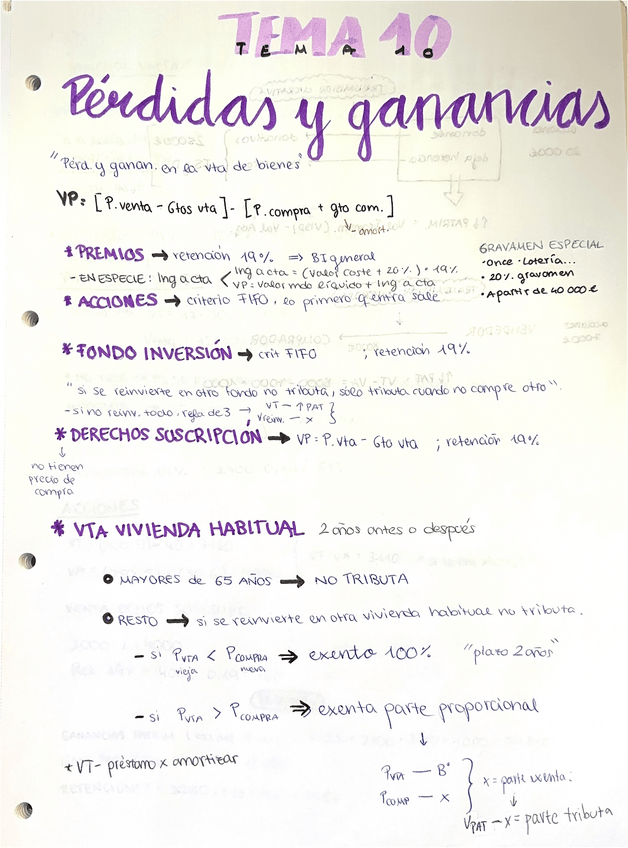 TEMA 10
TEMA 10
Pérdidas y ganancias
"Péra y ganan. en la vta de bienes"
VP= [P.venta - Gtos vta] - [P.compra + gto com.]
↳ -amort.
* PREMIOS → retención 19% => BI general
- EN ESPECIE: Ing a cta < Ing a cta = (valor coste + 20%) · 19%
VP = valor mdo + Ing a cta
GRAVAMEN ESPECIAL
• Once • Lotería...
• 20% gravamen
• A partir de 40 000 €
* ACCIONES → criterio FIFO, lo primero q entra sale
* FONDO INVERSIÓN → crit FIFO ; retención 19%
"si se reinvierte en otro fondo no tributa, sólo tributa cuando no compre otro".
- si no reinv. todo, regla de 3 → VT - ↑PAT
Vreinv. - x
* DERECHOS SUSCRIPCIÓN → VP = P.vta - Gto vta ; retención 19%
↓
no tienen
precio de
compra
* VTA VIVIENDA HABITUAL 2 años antes o después
• MAYORES de 65 AÑOS → NO TRIBUTA
• RESTO → si se reinvierte en otra vivienda habitual no tributa.
- si PVTA < PCOMPRA ⇒ exento 100% "plazo 2 años"
vieja nueva
- si PVTA > PCOMPRA ⇒ exenta parte proporcional
↓
+ VT - préstamo x amortizar
PVTA — Bº
PCOMP — x
} x = parte exenta.
↓
VPAT - x = parte tributa